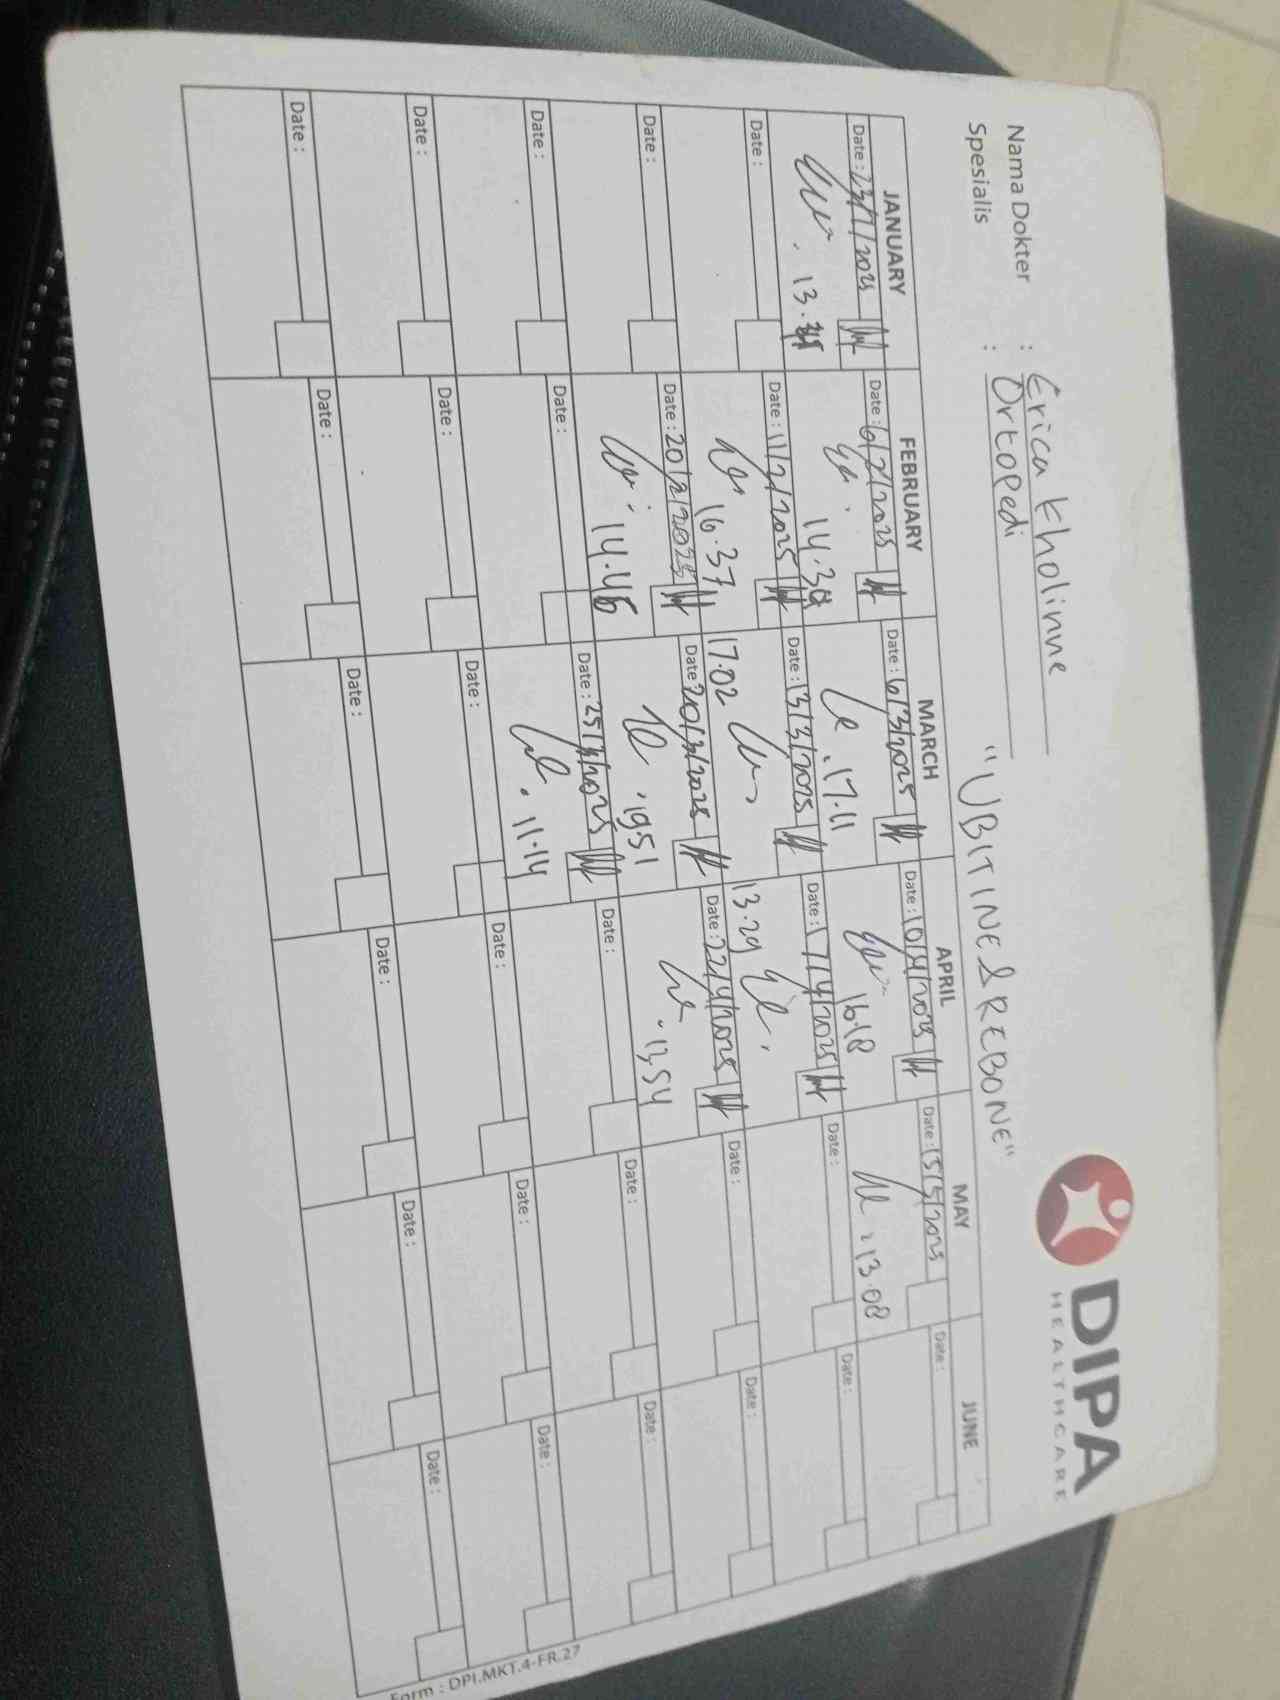 DIPA
HEALTHCARE
Nama Dokter : Erica Kholinne
Spesialis : Ortopedi
"UBITINE & REBONE"
JANUARY FEBRUARY MARCH APRIL MAY JUNE
Date : 23/1/2025 Date : 6/2/2025 Date : 6/3/2025 Date : 10/4/2025 Date : 15/5/2025 Date :
14.39 17.11 16.18 13.08
Date : Date : 11/2/2025 Date : 13/3/2025 Date : 17/4/2025 Date : Date :
16.37 17.02 13.29
Date : Date : 20/2/2025 Date : 20/3/2025 Date : 22/4/2025 Date : Date :
14.46 19.51 13.54
Date : Date : Date : 25/3/2025 Date : Date : Date :
11.14
Date : Date : Date : Date : Date : Date :
Date : Date : Date : Date : Date : Date :
Form : DPI.MKT.4-FR.27